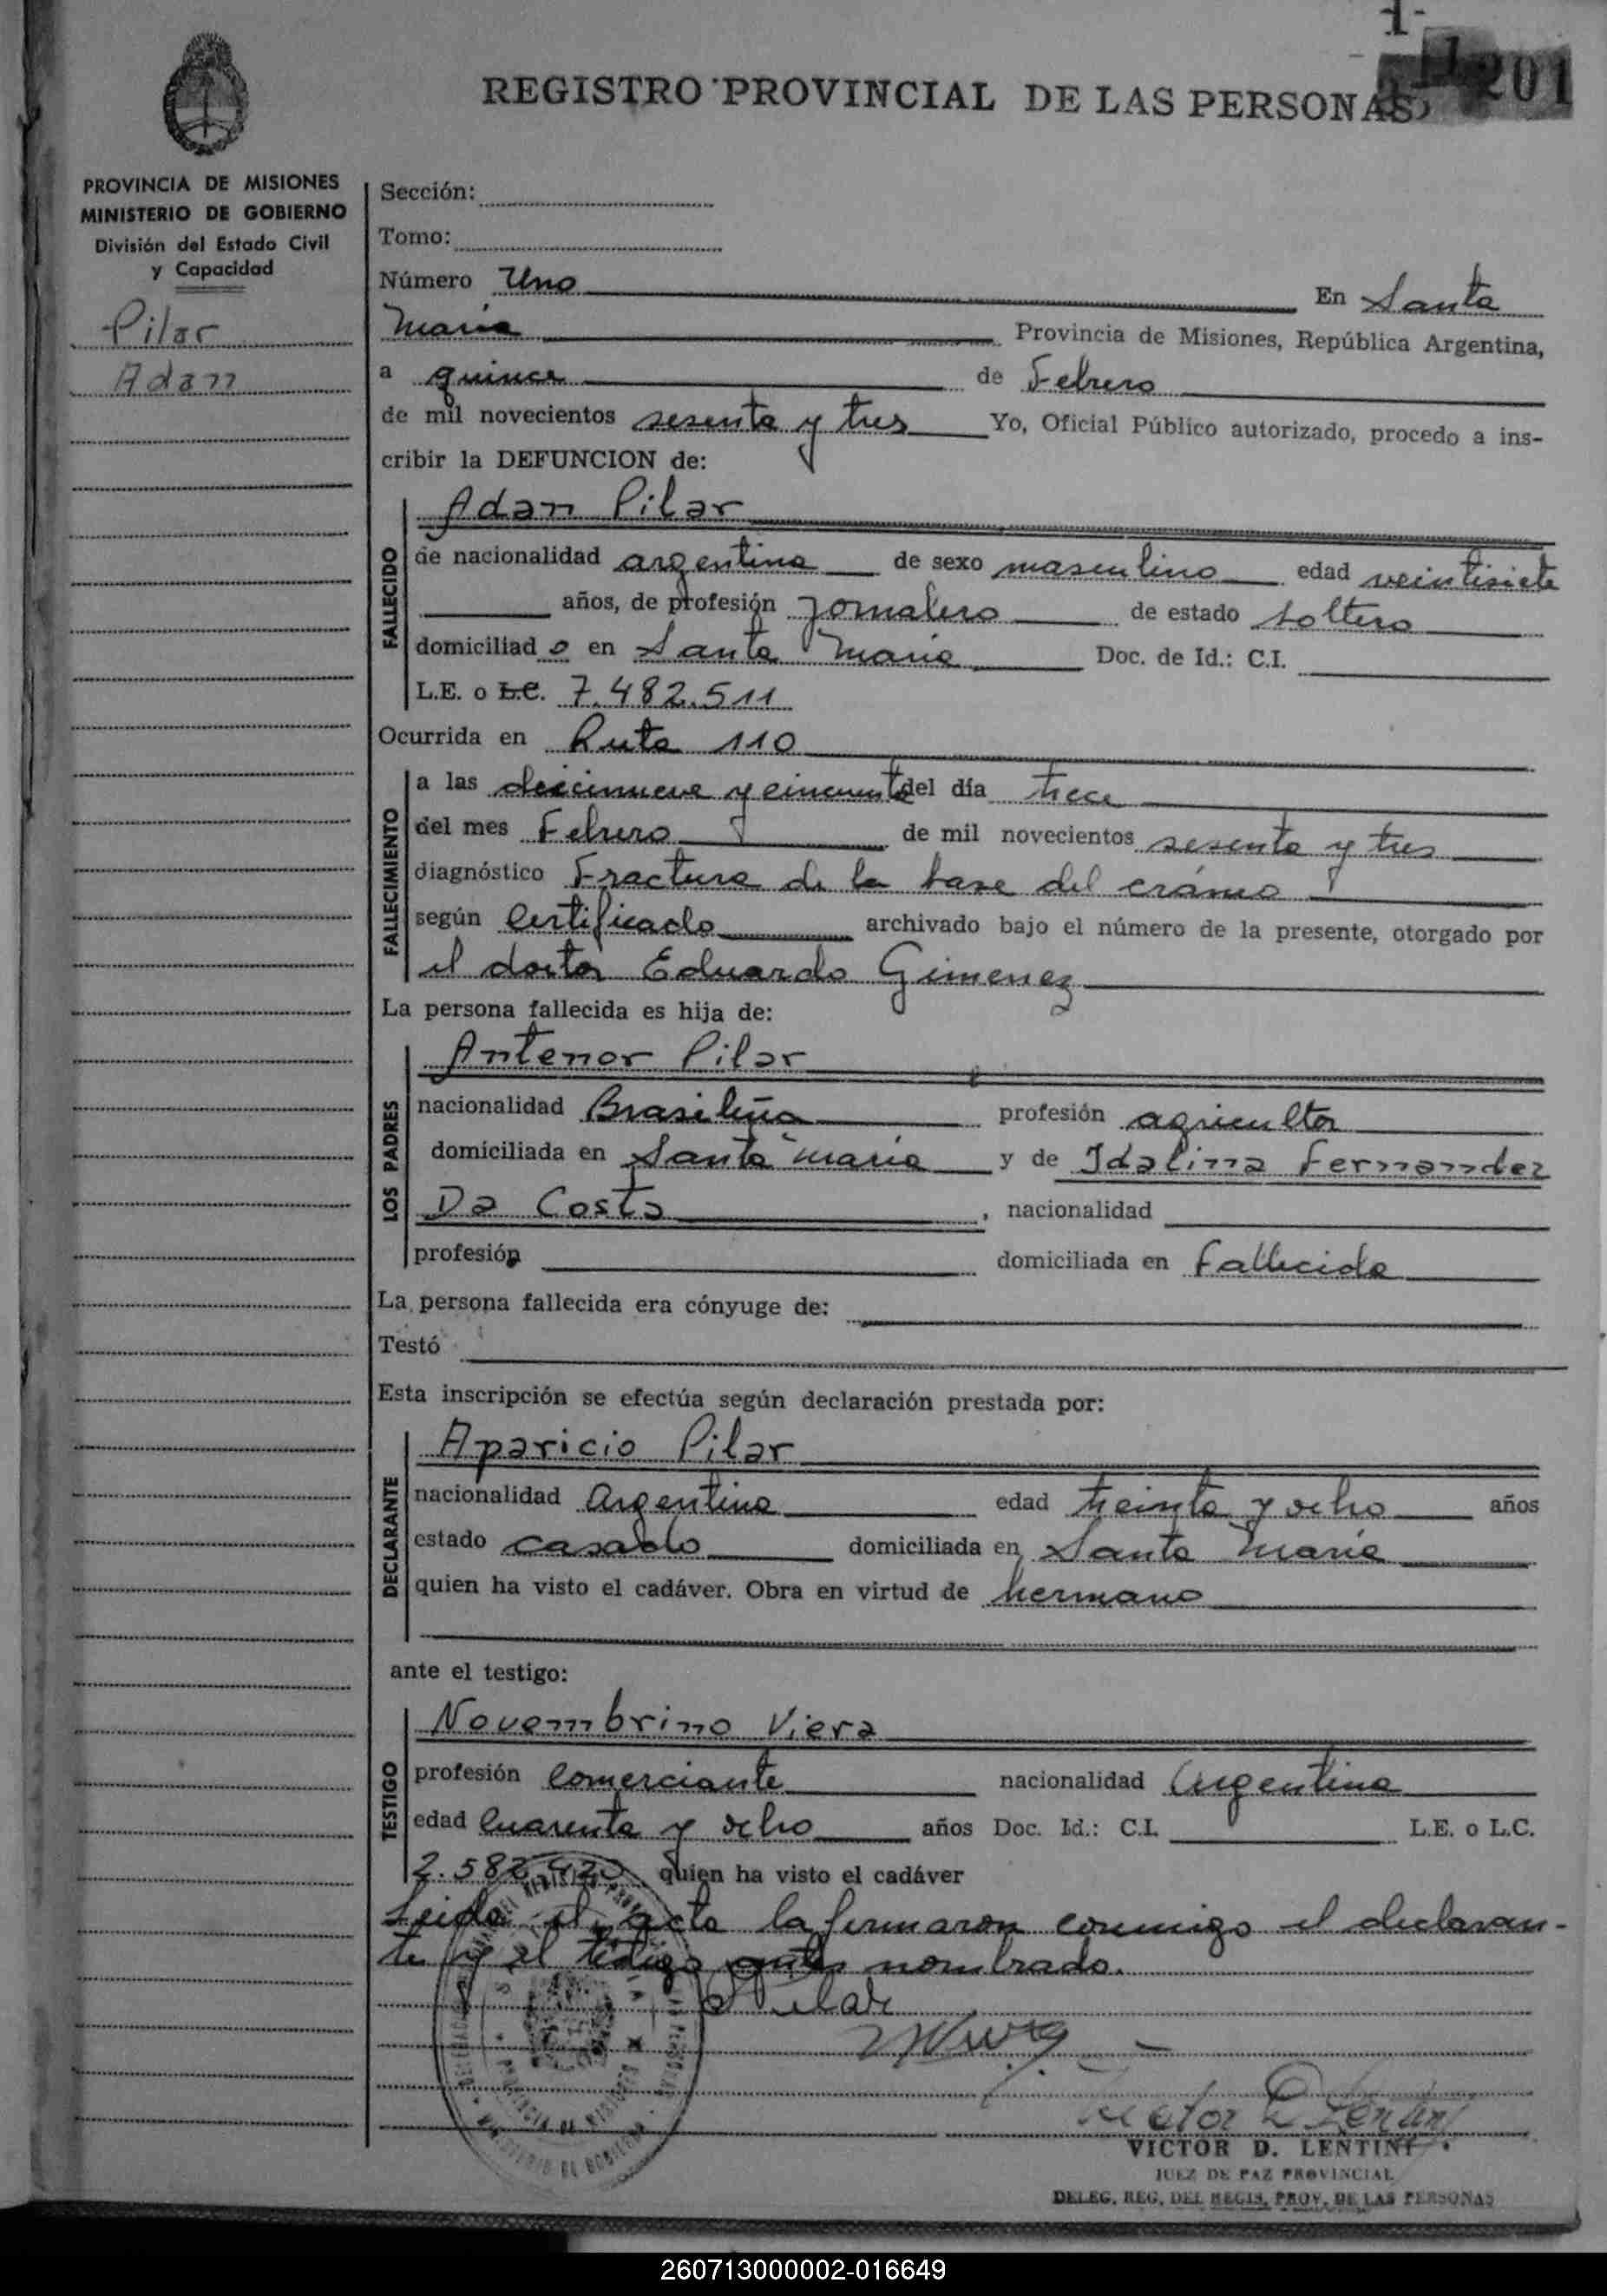 1-
11201
REGISTRO PROVINCIAL DE LAS PERSONAS
PROVINCIA DE MISIONES
MINISTERIO DE GOBIERNO
División del Estado Civil
y Capacidad
Pilar
Adan
Sección:
Tomo:
Número Uno En Santa
Maria Provincia de Misiones, República Argentina,
a quince de Febrero
de mil novecientos sesenta y tres Yo, Oficial Público autorizado, procedo a ins-
cribir la DEFUNCION de:
FALLECIDO
Adan Pilar
de nacionalidad argentina de sexo masculino edad veintisiete
años, de profesión Jornalero de estado soltero
domiciliad o en Santa Maria Doc. de Id.: C.I.
L.E. o L.C. 7.482.511
Ocurrida en Ruta 110
FALLECIMIENTO
a las diecinueve y cincuenta del día trece
del mes Febrero de mil novecientos sesenta y tres
diagnóstico Fractura de la base del cráneo
según Certificado archivado bajo el número de la presente, otorgado por
el doctor Eduardo Gimenez
La persona fallecida es hija de:
LOS PADRES
Antenor Pilar
nacionalidad Brasileña profesión agricultor
domiciliada en Santa Maria y de Idalina Fernandez
Da Costa, nacionalidad
profesión domiciliada en Fallecida
La persona fallecida era cónyuge de:
Testó
Esta inscripción se efectúa según declaración prestada por:
DECLARANTE
Aparicio Pilar
nacionalidad Argentina edad treinta y ocho años
estado casado domiciliada en Santa Maria
quien ha visto el cadáver. Obra en virtud de hermano
ante el testigo:
TESTIGO
Novembrino Viera
profesión Comerciante nacionalidad Argentina
edad Cuarenta y ocho años Doc. Id.: C.I. L.E. o L.C.
2.582.420 quien ha visto el cadáver
Leida el acta la firmaron conmigo el declaran-
te y el testigo antes nombrado.
Pilar
VICTOR D. LENTINI
JUEZ DE PAZ PROVINCIAL
DELEG. REG. DEL REGIS. PROV. DE LAS PERSONAS
260713000002-016649